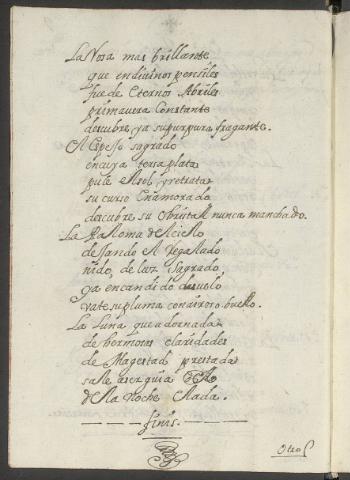 La Rosa mas brillante
que en divinos pensiles
fue de Eternos Abriles
primavera Constante
descubre ya su purpura fragante.
El Espejo sagrado
en cuya tersa plata
pule el sol, y retrata
su curso Enamorado
descubre su Christall nunca manchado.
La Paloma del cielo
dejando el regalado
nido, de luz sagrado,
ya en candido desuelo
vate su pluma con airoso buelo.
La Luna que adornada
de hermosas claridades
de Magestad prestada
sale a ser guia
de la Noche elada.
finis.
Otro